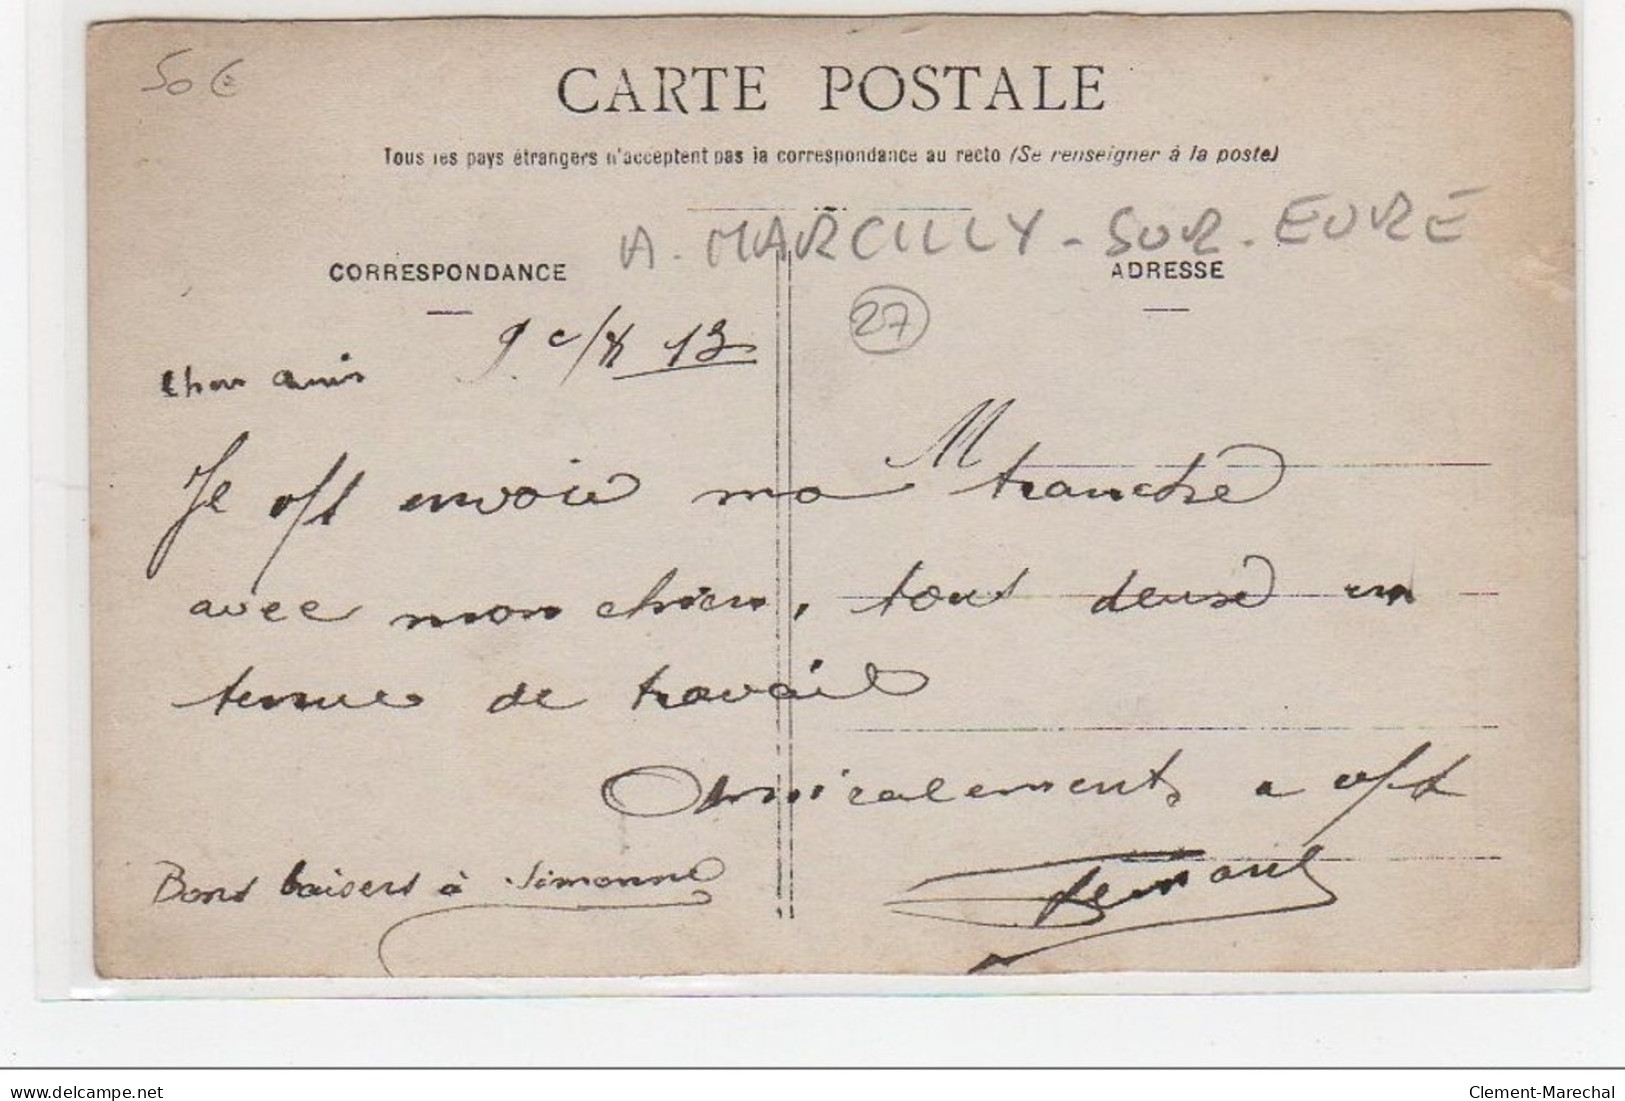 50 €
CARTE POSTALE
Tous les pays étrangers n'acceptent pas la correspondance au recto (Se renseigner à la poste)
A. MARCILLY - SUR - EURE
CORRESPONDANCE
ADRESSE
27
13
Je off envoie ma tranche
avec mon chien, tous deux en
tenue de travail
Amicalement a off
Bons baisers à Simonne
www.delcampe.net
Clement-Marechal